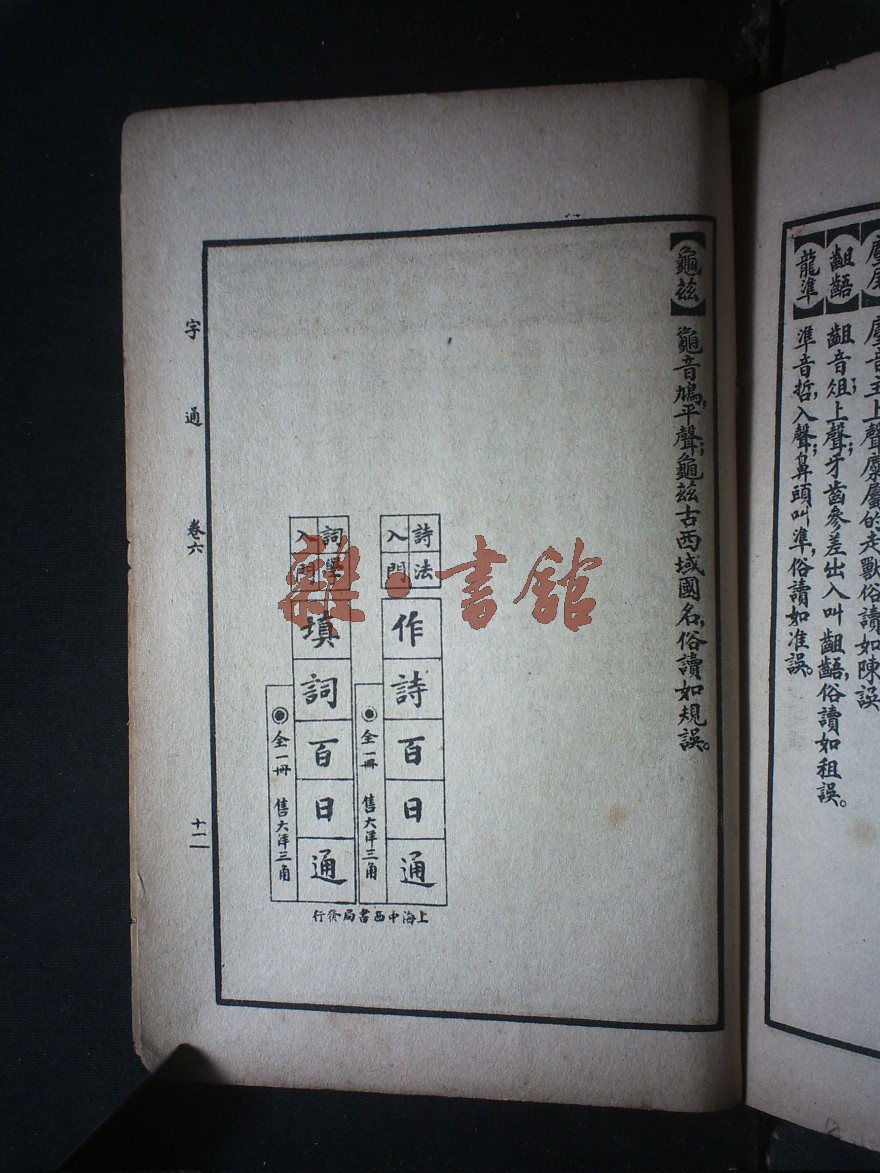 麈音主上聲麋屬的走獸俗讀如陳誤
【齟齬】齟音俎上聲;牙齒參差出入叫齟齬,俗讀如租誤。
【龍準】準音哲,入聲;鼻頭叫準,俗讀如准誤。
【龜茲】龜音鳩,平聲;龜茲古西域國名,俗讀如規誤。
詩法入門
作詩百日通
◉全一冊 售大洋三角
詞學入門
填詞百日通
◉全一冊 售大洋三角
上海中西書局發行
字通 卷六
雜·書館